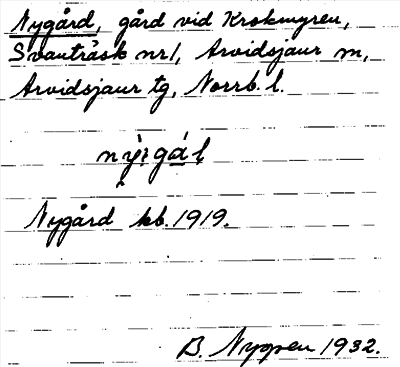 Nygård, gård vid Krokmyren,
Svanträsk nr1, Arvidsjaur sn,
Arvidsjaur tg, Norrb. l.
Nygård kb. 1919.
B. Nyper 1932.